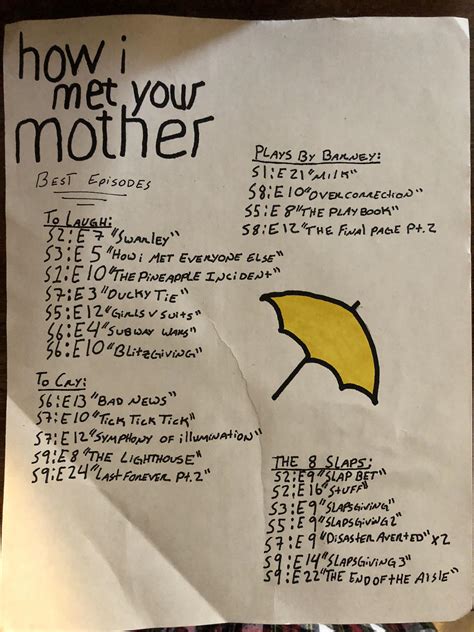 how i
met your
mother
BEST EPISODES
TO LAUGH:
S2:E7 "SWARLEY"
S3:E5 "HOW i MET EVERYONE ELSE"
S1:E10 "THE PINEAPPLE INCIDENT"
S7:E3 "DUCKY TIE"
S5:E12 "GIRLS V SUITS"
S6:E4 "SUBWAY WARS"
S6:E10 "BLITZGIVING"
TO CRY:
S6:E13 "BAD NEWS"
S7:E10 "TICK TICK TICK"
S7:E12 "SYMPHONY OF ILLUMINATION"
S9:E8 "THE LIGHTHOUSE"
S9:E24 "LAST FOREVER PT.2"
PLAYS BY BARNEY:
S1:E21 "MILK"
S8:E10 "OVERCORRECTION"
S5:E8 "THE PLAYBOOK"
S8:E12 "THE FINAL PAGE PT.2
THE 8 SLAPS:
S2:E9 "SLAP BET"
S2:E16 "STUFF"
S3:E9 "SLAPSGIVING"
S5:E9 "SLAPSGIVING 2"
S7:E9 "DISASTER AVERTED" X2
S9:E14 "SLAPSGIVING 3"
S9:E22 "THE END OF THE AISLE"